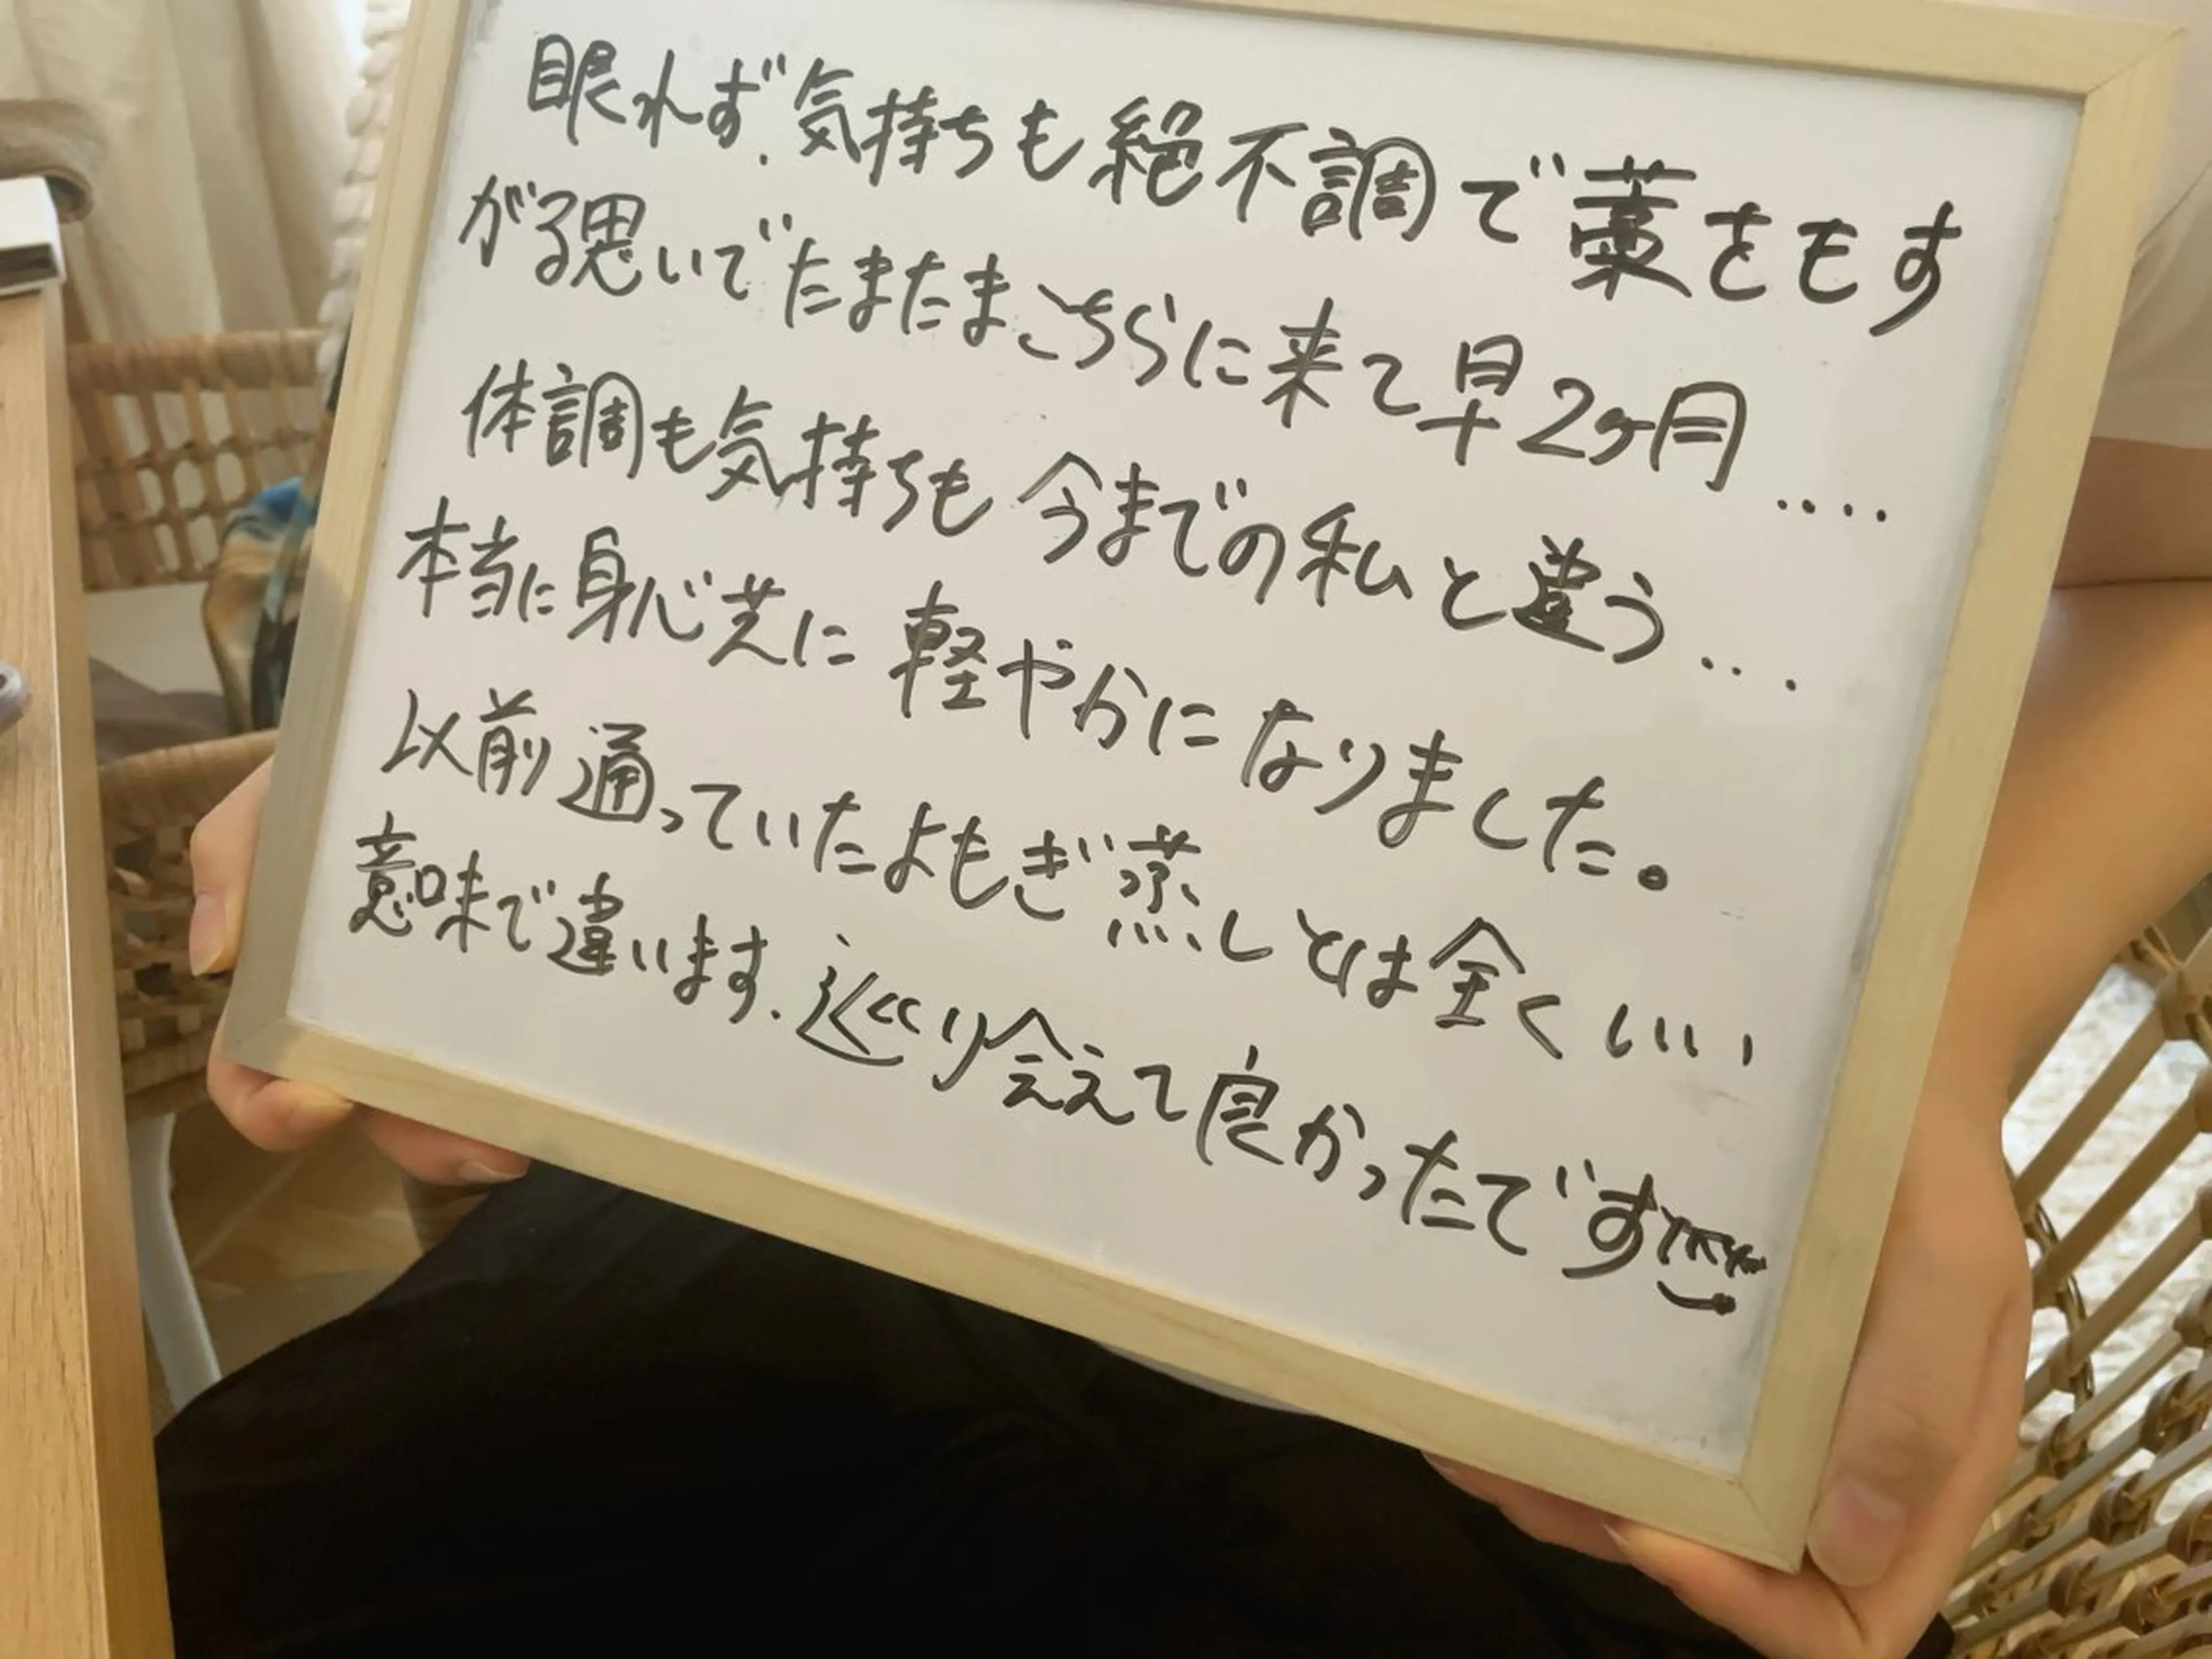 眠れず、気持ちも絶不調で藁をもす
がる思いでたまたまこちらに来て早2ヶ月....
体調も気持ちも今までの私と違う...
本当に身心共に軽やかになりました。
以前通っていたよもぎ蒸しとは全くいい
意味で違います、巡り会えて良かったです